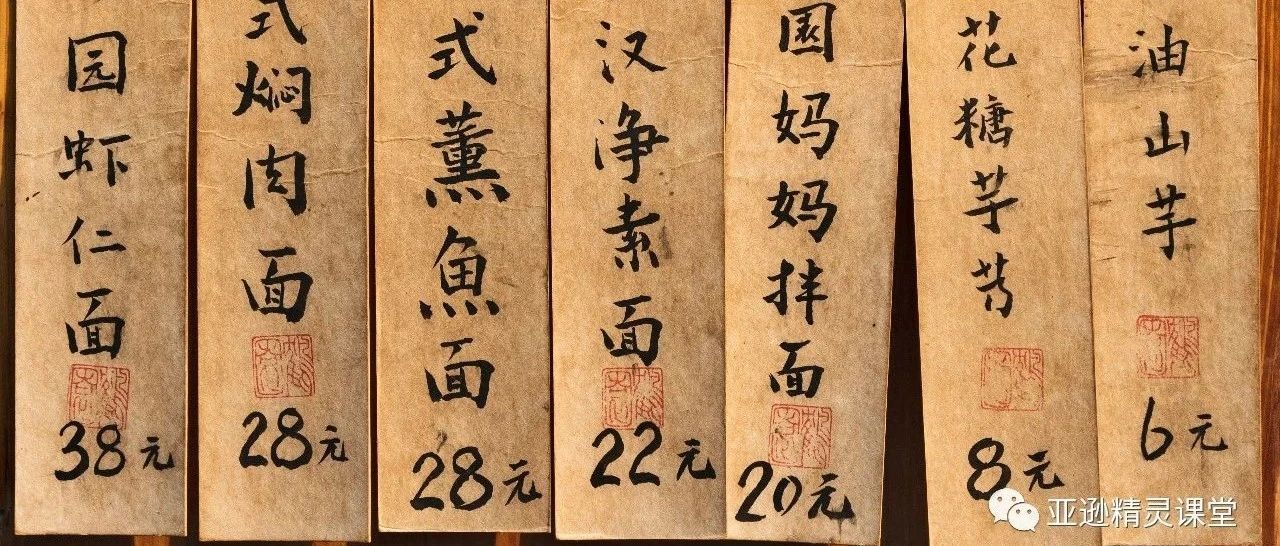 园虾仁面
38元
式焖肉面
28元
式薰魚面
28元
汉净素面
22元
园妈妈拌面
20元
花糖芋艿
8元
油山芋
6元
亚逊精灵课堂